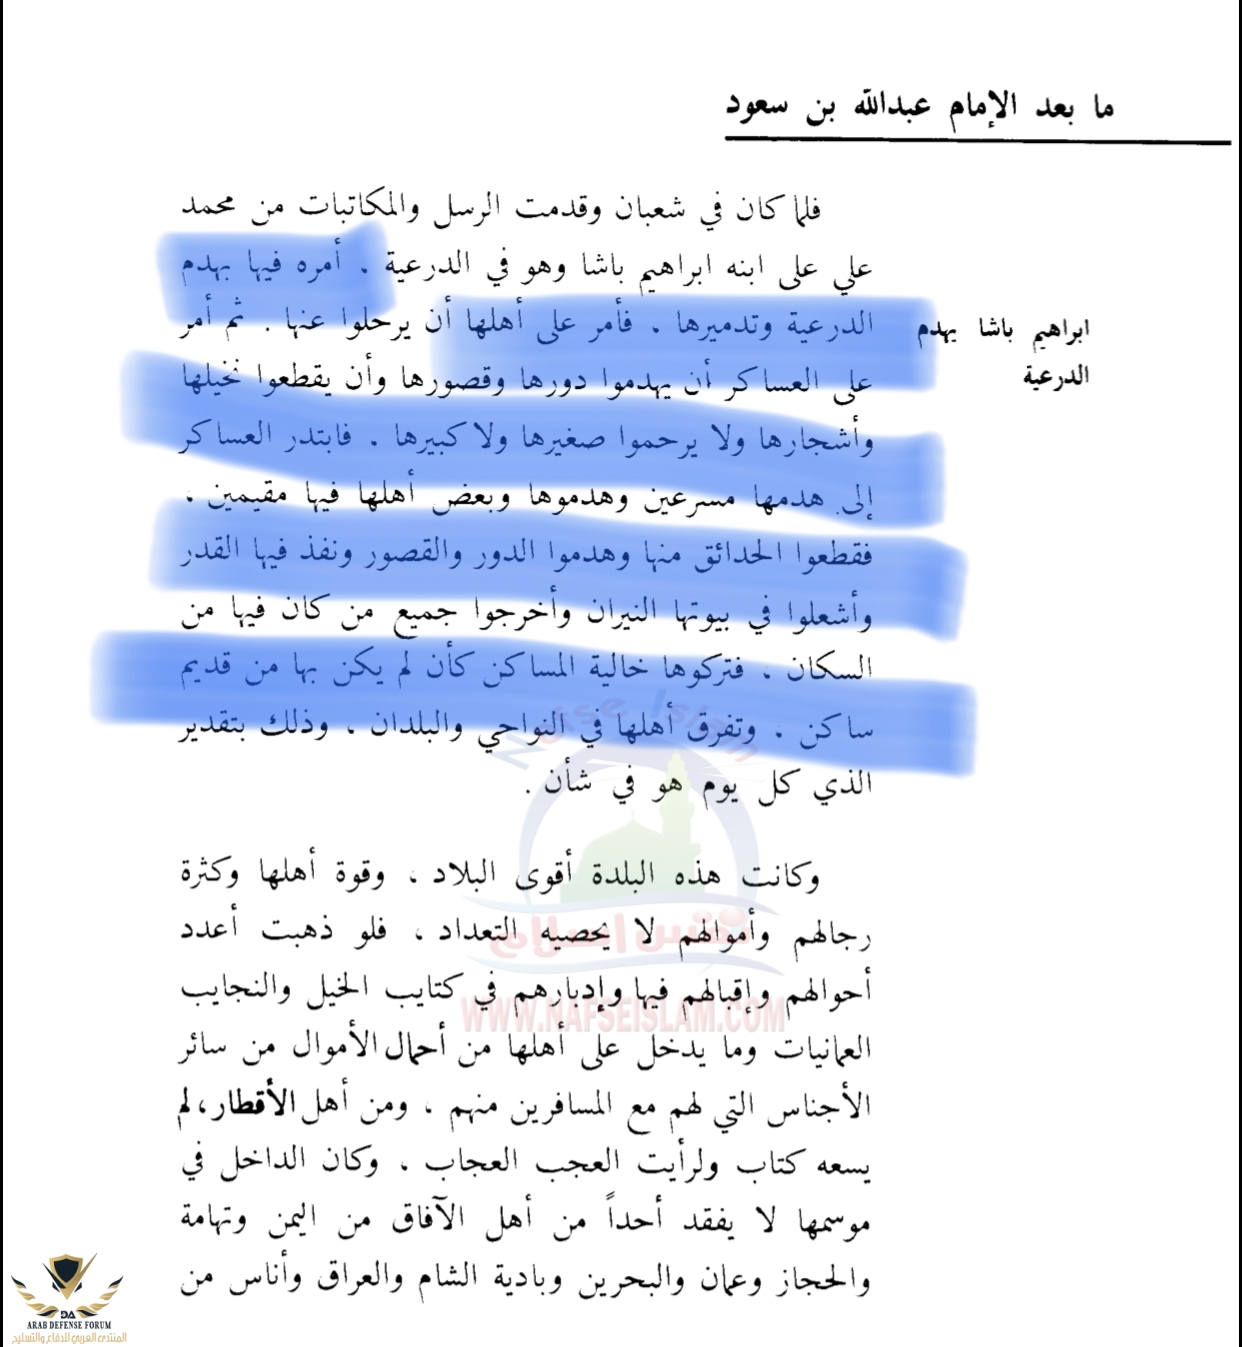 ما بعد الإمام عبدالله بن سعود
فلما كان في شعبان وقدمت الرسل والمكاتبات من محمد
علي على ابنه ابراهيم باشا وهو في الدرعية . أمره فيها بهدم
الدرعية وتدميرها . فأمر على أهلها أن يرحلوا عنها . ثم أمر
على العساكر أن يهدموا دورها وقصورها وأن يقطعوا نخيلها
وأشجارها ولا يرحموا صغيرها ولا كبيرها . فابتدر العساكر
إلى هدمها مسرعين وهدموها وبعض أهلها فيها مقيمين ،
فقطعوا الحدائق منها وهدموا الدور والقصور ونفذ فيها القدر
وأشعلوا في بيوتها النيران وأخرجوا جميع من كان فيها من
السكان . فتركوها خالية المساكن كأن لم يكن بها من قديم
ساكن . وتفرق أهلها في النواحي والبلدان ، وذلك بتقدير
الذي كل يوم هو في شأن .
ابراهيم باشا يهدم
الدرعية
وكانت هذه البلدة أقوى البلاد ، وقوة أهلها وكثرة
رجالهم وأموالهم لا يحصيه التعداد ، فلو ذهبت أعدد
أحوالهم وإقبالهم فيها وإدبارهم في كتايب الخيل والنجايب
العمانيات وما يدخل على أهلها من أحمال الأموال من سائر
الأجناس التي لهم مع المسافرين منهم ، ومن أهل الأقطار، لم
يسعه كتاب ولرأيت العجب العجاب . وكان الداخل في
موسمها لا يفقد أحداً من أهل الآفاق من اليمن وتهامة
والحجاز وعمان والبحرين وبادية الشام والعراق وأناس من
Nafse Islam
نفس اسلام
WWW.NAFSEISLAM.COM
DA
ARAB DEFENSE FORUM
المنتدى العربي للدفاع والتسليح